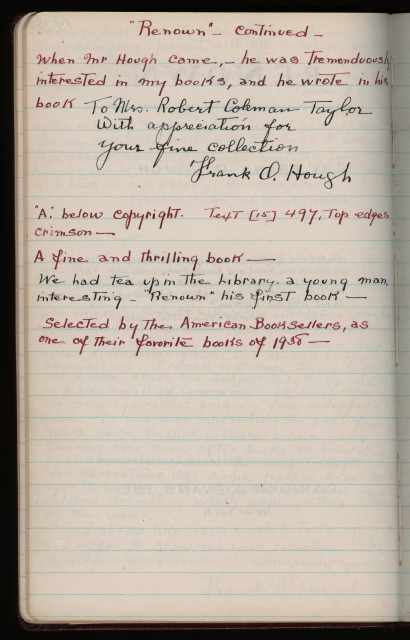 "Renown" - continued -
When Mr Hough came, - he was tremendously
interested in my books, and he wrote in his
book To Mrs. Robert Coleman Taylor
With appreciation for
your fine collection
Frank O. Hough
"A." below copyright. Text [15] 497. Top edges
crimson —
A fine and thrilling book —
We had tea up in the Library. a young man,
interesting - "Renown" his first book —
Selected by the American Booksellers, as
one of their favorite books of 1938 —